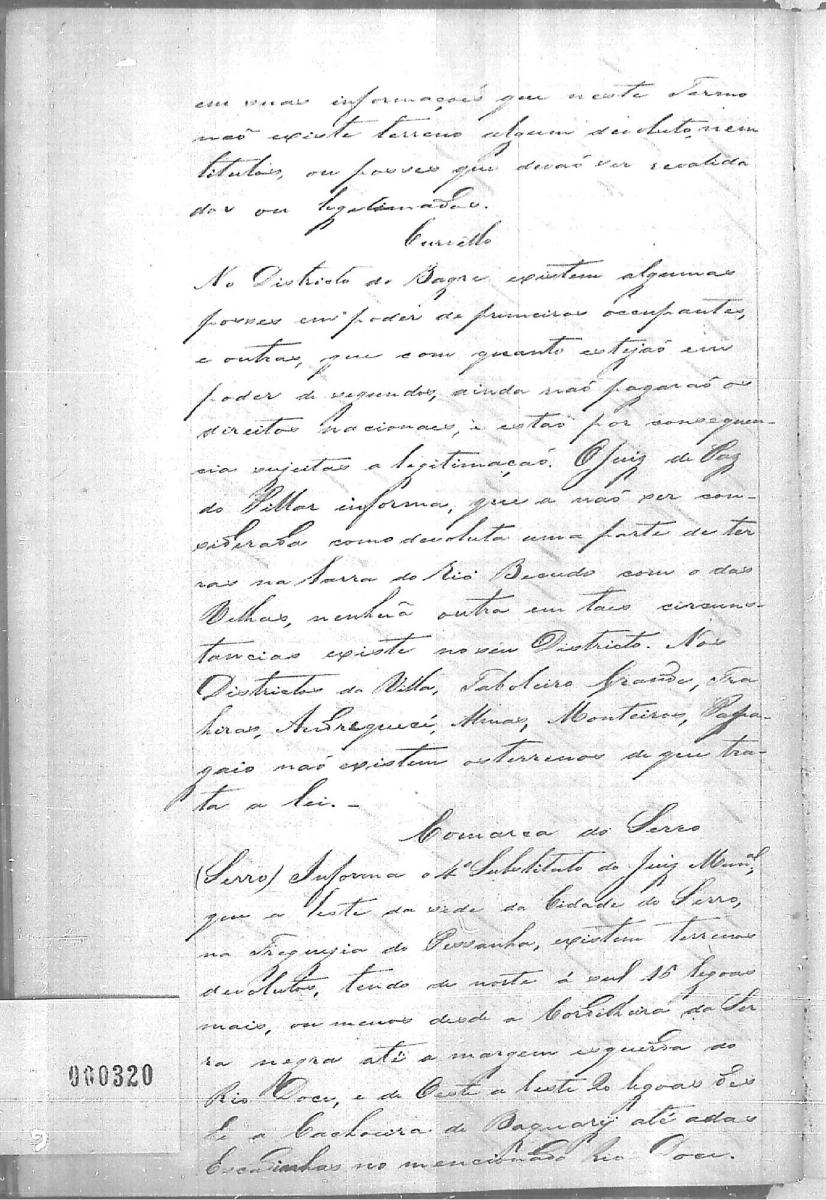 em suas informaçoẽs que neste Termo
naõ existe terreno algum devoluto, nem
titulos, ou posses que devaõ ser revalida
dos ou legitimados.
Curvêllo
No Districto do Bagre existem algumas
posses em poder de primeiros occupantes,
e outras, que com quanto estejaõ em
poder de segundos, ainda naõ pagaraõ os
direitos nacionaes, e estaõ por consequen-
cia sujeitas a legitimaçaõ. O Juiz de Paz
do Pillar informa, que a naõ ser con-
siderada como devoluta uma parte de ter
ras na barra do Rio Becudo com o das
Velhas, nenhuã outra em taes circuns-
tancias existe no seu Districto. Nos
Districtos da Villa, Taboleiro Grande, Tra
hiras, Andrequecé, Mo­rros, Monteiros, Papa-
gaio naõ existem os terrenos de que tra-
ta a lei. _
Comarca do Serro
(Serro) Informa o 4º Substituto do Juiz Munal,
que a leste da sede da Cidade do Serro,
na Freguezia do Pessanha, existem terrenos
devolutos, tendo de norte á sul 16 legoas
mais, ou menos desde a Cordilheira da Ser
ra negra até a margem esquerda do
Rio Doce, e de Oeste a leste 20 legoas des
de a Cachoeira de Baguary até a das
Escadinhas no mencionado Rio Doce.
000320